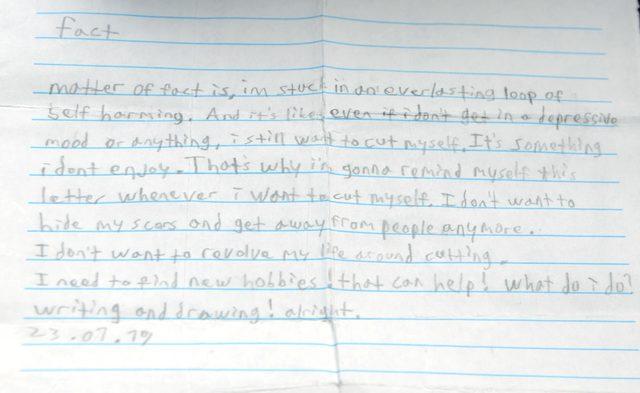 fact
matter of fact is, im stuck in an everlasting loop of
self harming. And it's like, even if i don't get in a depressive
mood or anything, i still want to cut myself. It's something
i dont enjoy. That's why i'm gonna remind myself this
letter whenever i want to cut myself. I don't want to
hide my scars and get away from people anymore.
I don't want to revolve my life around cutting.
I need to find new hobbies! that can help! What do i do?
writing and drawing! alright.
23.07.19